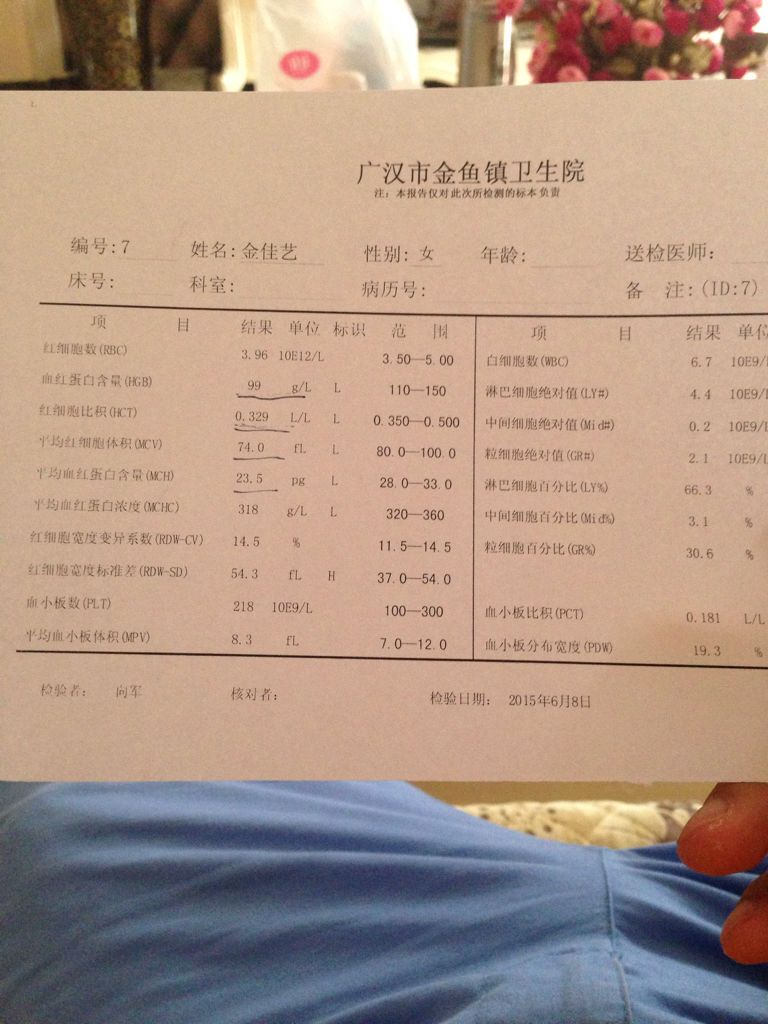 广汉市金鱼镇卫生院
注：本报告仅对此次所检测的标本负责
编号:7 姓名:金佳艺 性别:女 年龄: 送检医师:
床号: 科室: 病历号: 备 注:(ID:7)
项 目 结果 单位 标识 范 围 项 目 结果 单位
红细胞数(RBC) 3.96 10E12/L 3.50—5.00 白细胞数(WBC) 6.7 10E9/
血红蛋白含量(HGB) 99 g/L L 110—150 淋巴细胞绝对值(LY#) 4.4 10E9/
红细胞比积(HCT) 0.329 L/L L 0.350—0.500 中间细胞绝对值(Mid#) 0.2 10E9/
平均红细胞体积(MCV) 74.0 fL L 80.0—100.0 粒细胞绝对值(GR#) 2.1 10E9/
平均血红蛋白含量(MCH) 23.5 pg L 28.0—33.0 淋巴细胞百分比(LY%) 66.3 %
平均血红蛋白浓度(MCHC) 318 g/L L 320—360 中间细胞百分比(Mid%) 3.1 %
红细胞宽度变异系数(RDW-CV) 14.5 % 11.5—14.5 粒细胞百分比(GR%) 30.6 %
红细胞宽度标准差(RDW-SD) 54.3 fL H 37.0—54.0
血小板数(PLT) 218 10E9/L 100—300 血小板比积(PCT) 0.181 L/L
平均血小板体积(MPV) 8.3 fL 7.0—12.0 血小板分布宽度(PDW) 19.3 %
检验者: 向军 核对者: 检验日期: 2015年6月8日